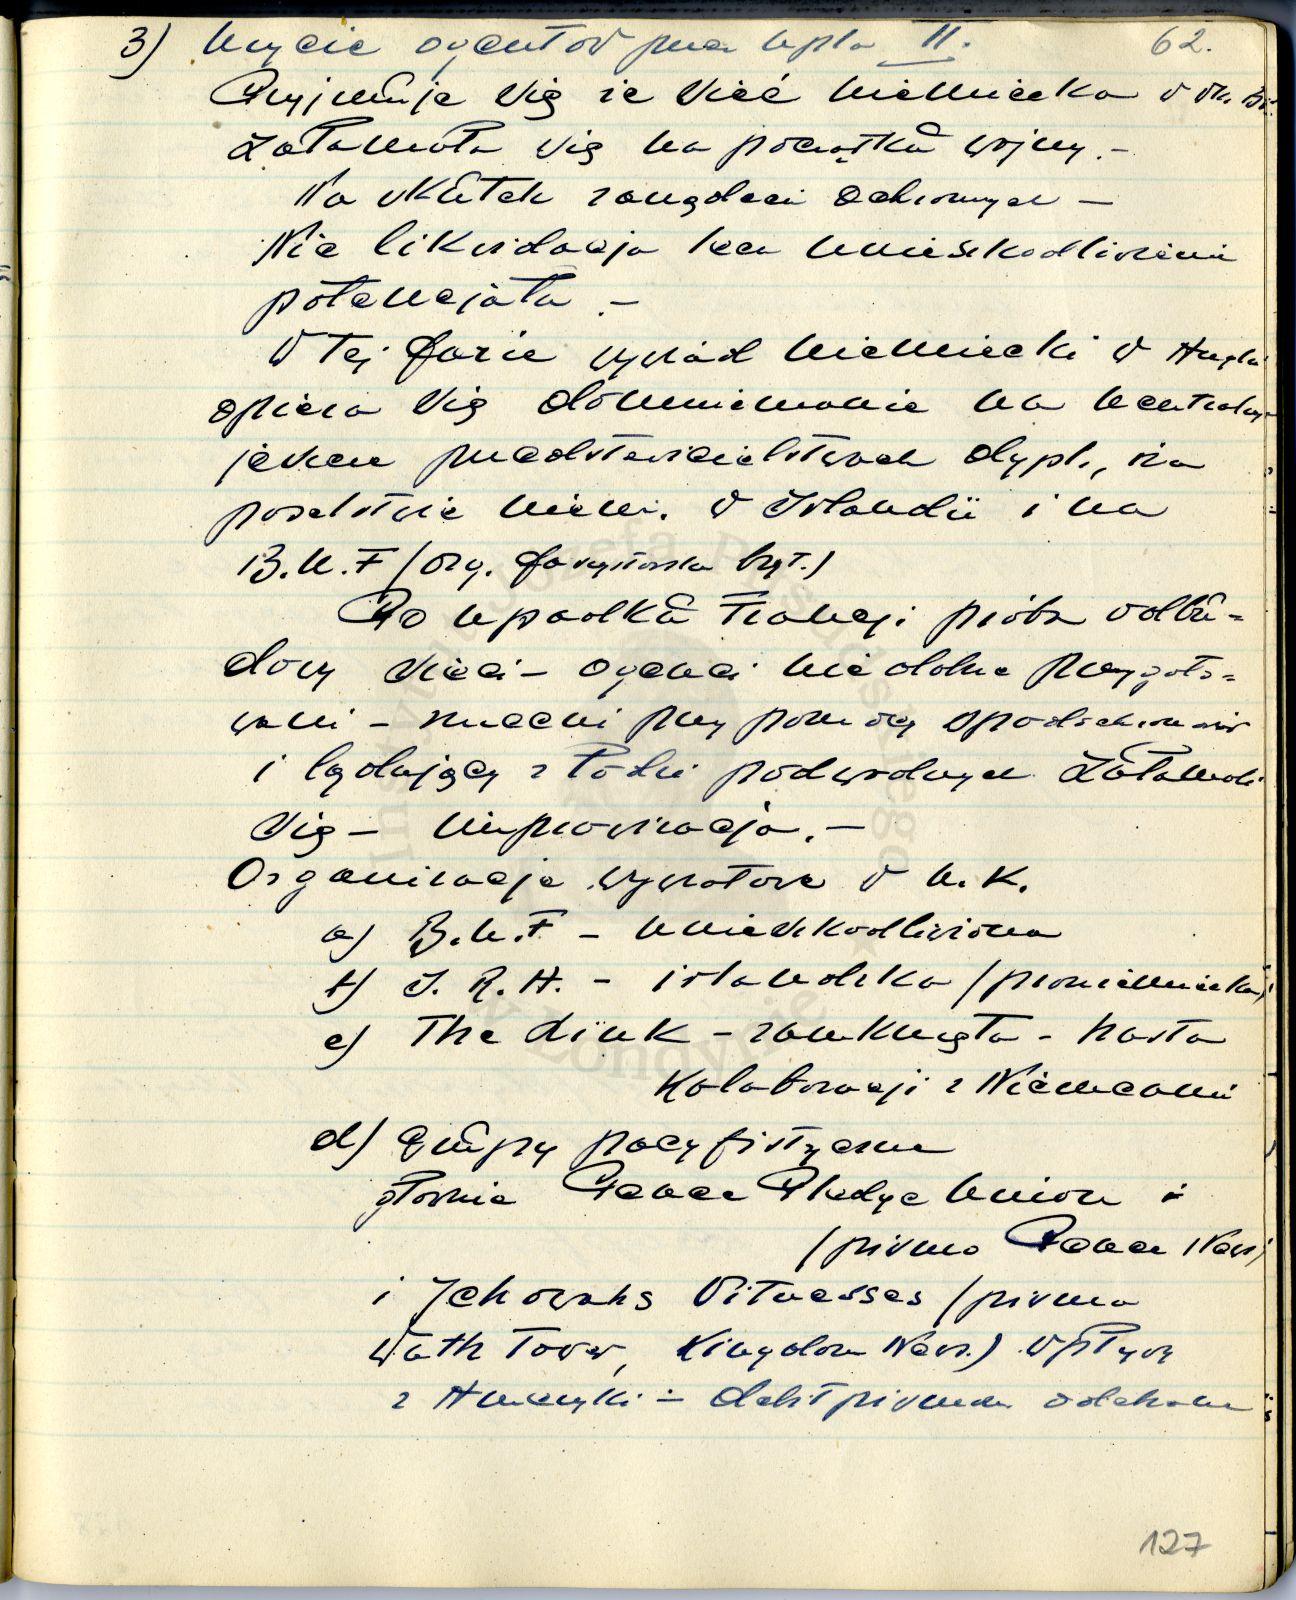 3) Użycie agentów przez npla II. 62.
Przyjmuje się że sieć niemiecka w W. Br.
załamała się na początku wojny. –
Na skutek zarządzeń ochronnych –
Nie likwidacja lecz unieszkodliwienie
potencjału. –
W tej fazie wywiad niemiecki w Anglii
opiera się domniemanie na neutralnych
przedstawicielstwach dypl., na
poselstwie niem. w Irlandii i na
B.U.F (org. faszystowska bryt.)
Po upadku Francji próba odbu=
dowy sieci – agenci nie dobrze przygoto=
wani – zrzuceni przy pomocy spadochronów
i lądujący z łodzi podwodnych załamali
się – improwizacja. –
Organizacje wywrotowe w U.K.
a) B.U.F – unieszkodliwiona
b) I.R.A. – irlandzka (proniemiecka)
c) The Link – zamknięta – hasła
Kolaboracji z Niemcami
d) grupy pacyfistyczne
głównie Peace Pledge Union i
(pismo Peace News)
i Jehowahs Witnesses (pismo
Wath Tower, Kingdom News.) wpływy
z Ameryki –
127
Instytut Józefa Piłsudskiego w Londynie